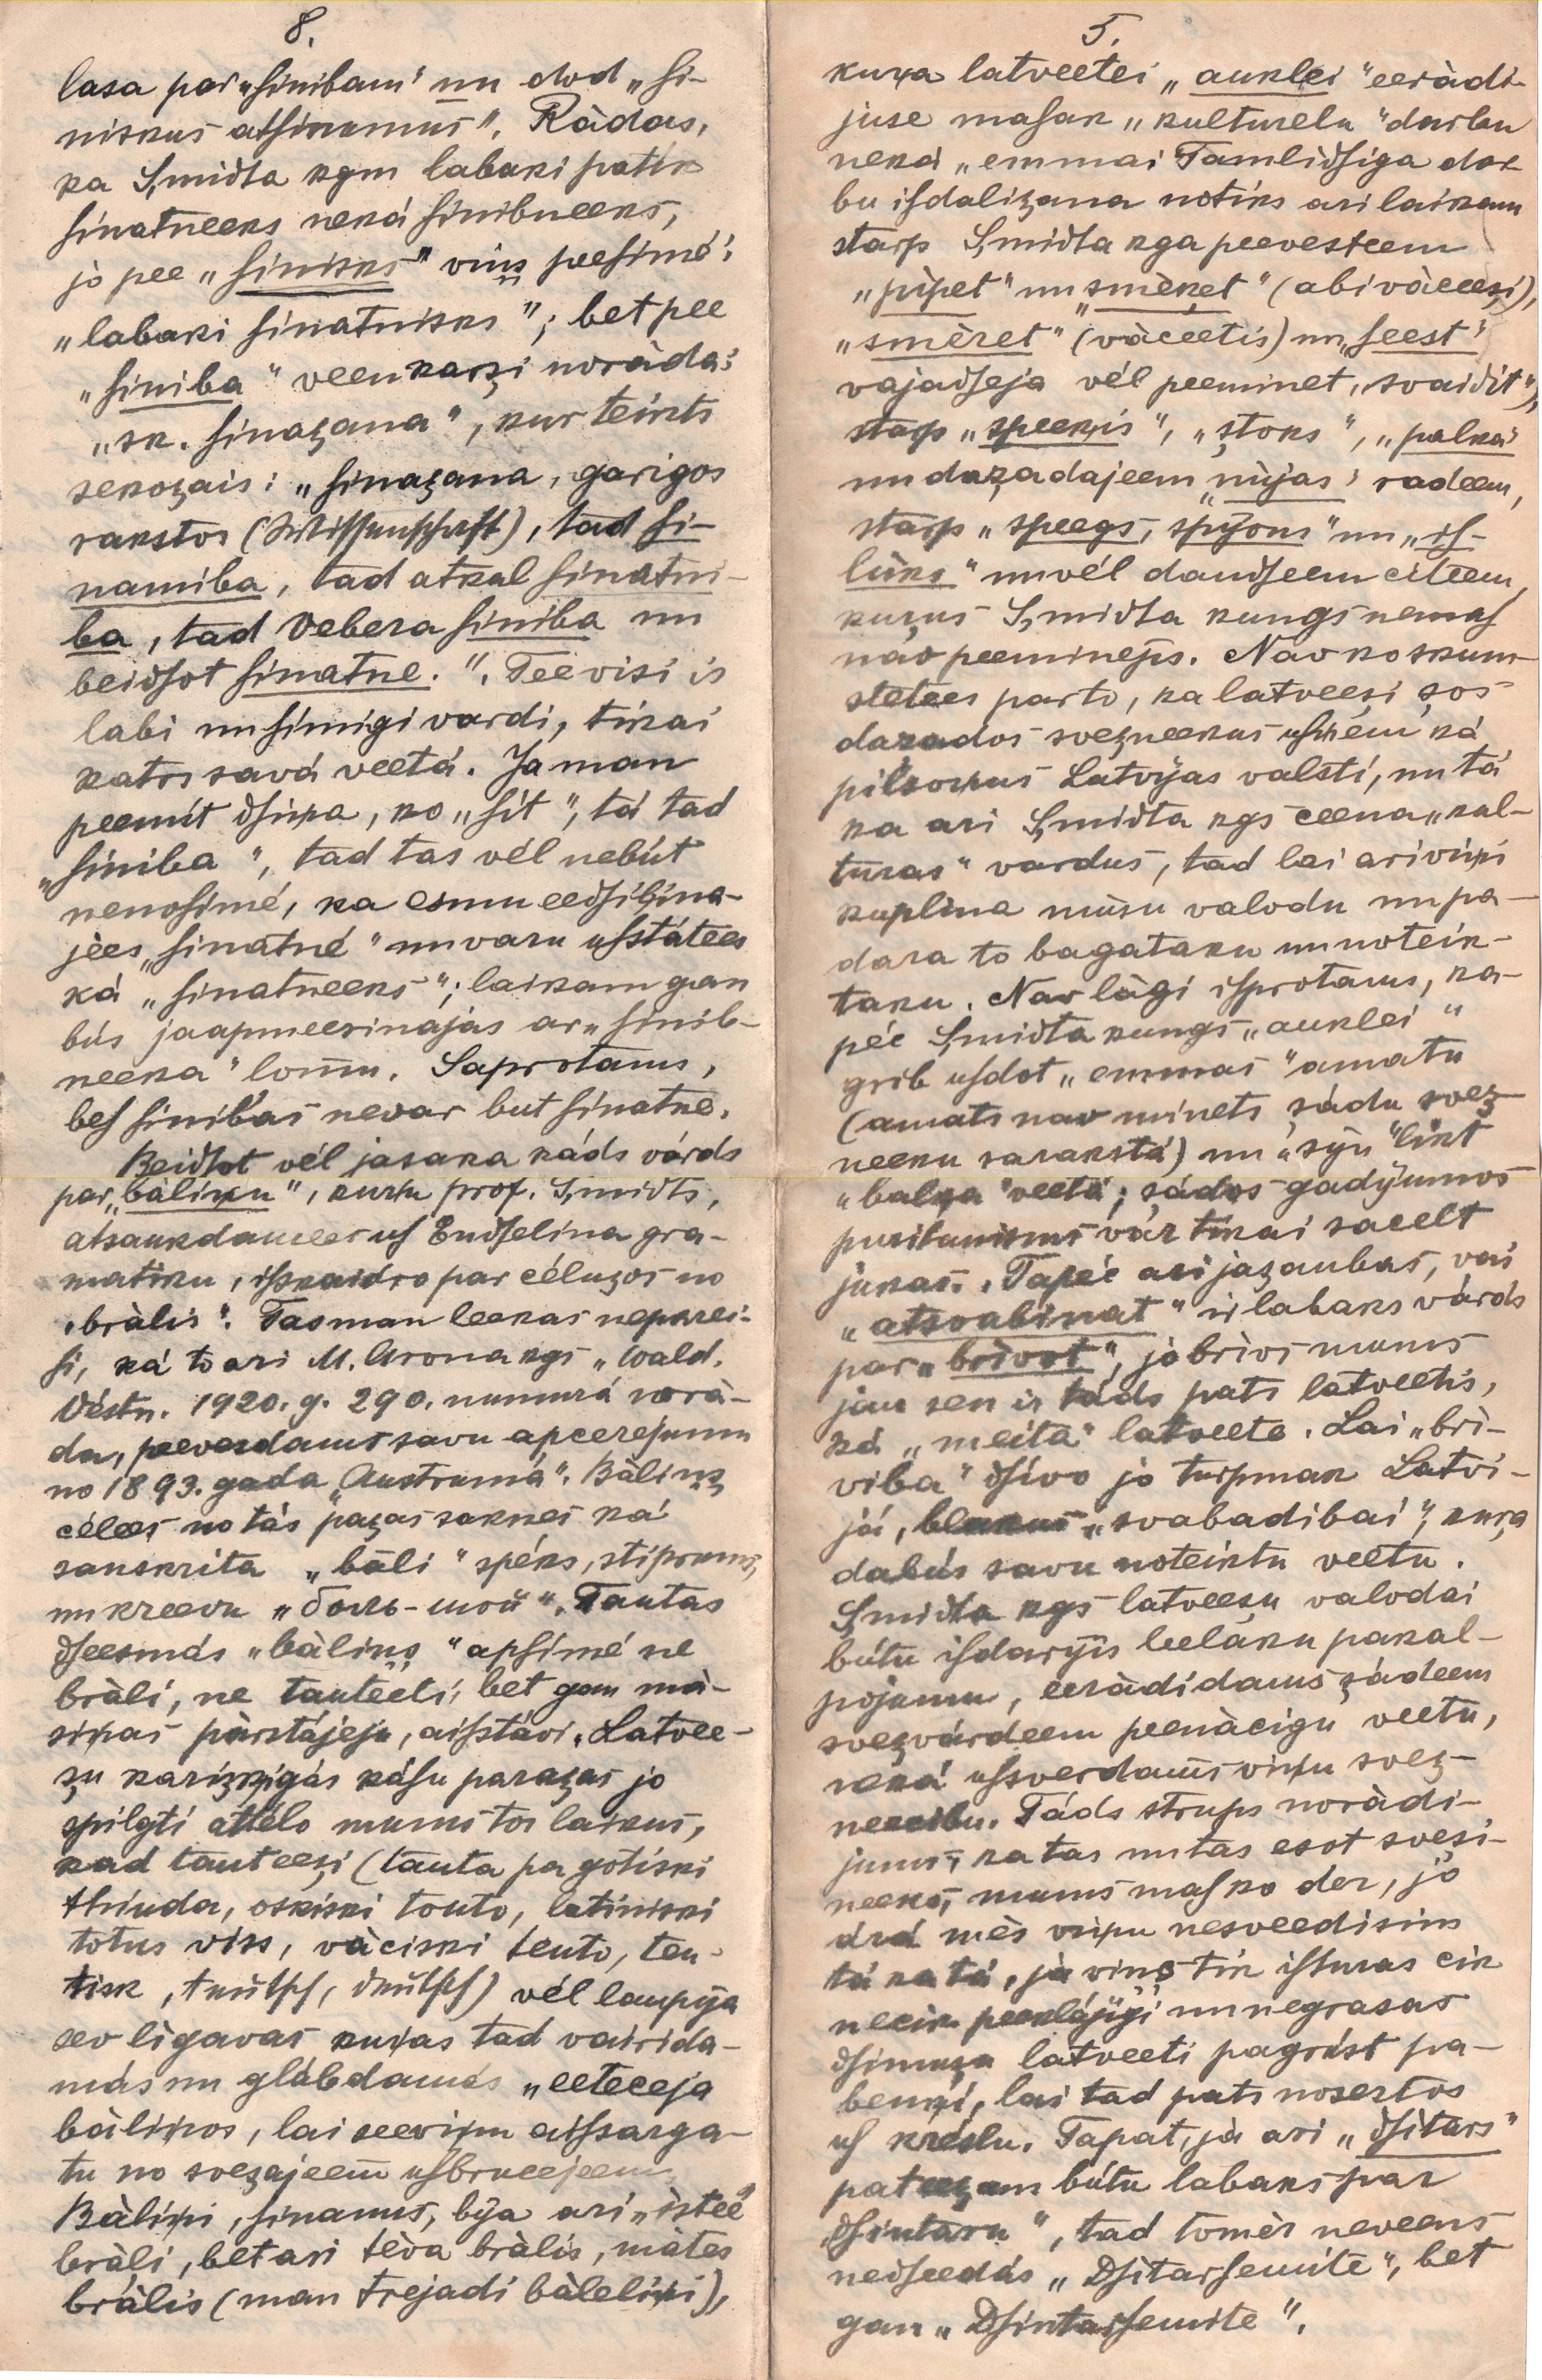 8.
lasa par „sinibam" un dod „si-
niskus atsinumus". Rādas,
ka Smidta kgm labaki patīk
sinatneeks nekā sinibneeks,
jo pee „sinisks" viņš peesimē:
„labaki sinatnisks"; bet pee
„siniba" veenkarşi norāda:
„sk. sinaşana", kur teikts
sekoşais: „sinaşana, garigos
rakstos (Wissenschaft), tad si-
namiba, tad atkal sinatni-
ba, tad Vebera siniba un
beidsot sinatne.". Tee visi is
labi un simigi vardi, tikai
katrs savā veetā. Ja man
peemīt dsiņa, ko „sit", tā tad
„siniba", tad tas vēl nebūt
nenosimē, ka esmu eedsiļina-
jēes „sinatnē" un varu usstātees
kā „sinatneeks"; laikam gan
būs jaapmeerinājas ar „sinib-
neeka" lomu. Saprotams,
bes sinibas nevar but sinatne.
Beidsot vēl jasaka kāds vārds
par „bāliņu", kuŗu prof. Smidts,
atsaukdamees us Endselina gra-
matiku, isskaidro par cēluşos no
„brālis". Tas man leekas neparei-
si, kā to ari M. Arona kgs „Wald.
Vēstn. 1920. g. 290. numurā norā-
da, peevesdams savu apcerejumu
no 1893. gada „Austrumā". Bāliņş
cēlees no tās paşas saknes kā
sanskrita „bāli" spēks, stiprums,
un kreevu „боль-шой". Tautas
dseesmās „bāliņş" apsimē ne
brāli, ne tauteeti, bet gan mā-
siņas pārstājeju, aisstāvi. Latvee-
şu karişķigās kāsu paraşas jo
spilgti attēlo mums tos laikus,
kad tauteeşi (tauta pa gotiski
thiuda, oskiski touto, latiniski
totus viss, vāciski teuto, teu-
tisk, teutsch, deutsch) vēl laupija
sev ligavas kuŗas tad vairida-
mās un glābdamās „eeteceja
bāliņos, lai seeviņu aissarga-
tu no sveşajeem usbruceejeem.
Bāliņi, sinams, bija ari „istee"
brāļi, bet ari tēva brālis, mātes
brālis (man trejadi bāleliņi),
5.
kuŗa latveetei „auklei" eerādi-
juse masak „kulturelu" darbu
nekā „emmai". Tamlidsiga dar-
bu isdalişana notiks ari laikam
starp Smidta kga peevesteem
„pipet" un „smēķet" (abi vāceeşi),
„smēret" (vāceetis) un „seest"
vajadseja vēl peeminet „svaidit"),
starp „speeķis", „ştoks", „palka"
un daşadajeem „nūjas" radeem,
starp „speegs, spijons" un „is-
lūks" un vēl daudseem citeem,
kuŗus Smidta kungs nemas
nav peeminejis. Nav ko skum-
stetees par to, ka latveeşi şos
daşados sveşneekus usņēm kā
pilsoņus Latvijas valstī, un tā
ka ari Smidta kgs ceena „kul-
turas" vardus, tad lai ari viņi
kuplina mūsu valodu un pa-
dara to bagataku un noteik-
taku. Nav lāgi isprotams, ka-
pēc Smidta kungs „auklei"
grib usdot „emmas" amatu
(amats nav minets şādu sveş-
neeku sarakstā) un „siju" likt
„baļķa" veetā; şādos gadijumos
purisms var tikai sacelt
jukas. Tapēc ari jaşaubas, vai
„atsvabinat" ir labaks vārds
par „brivot", jo brivs mums
jau sen ir tāds pats latveetis,
kā „meita" latveete. Lai „bri-
viba" dsivo jo turpmak Latvi-
jā, blakus „svabadibai", kuŗa
dabūs savu noteiktu veetu.
Smidta kgs latveeşu valodai
būtu isdarijis leelaku pakal-
pojumu, eerādidams şādeem
sveşvārdeem peenācigu veetu,
nekā ussverdams viņu sveş-
neecibu. Tāds strups norādi-
jums, ka tas un tas esot svesi-
neeks, mums mas ko der, jo
mēs viņu nesveedisim
tā ka tā, ja viņş tik isturas cik
necik peeklājigi un negrasas
dsimuşu latveeti pagrūst pa-
benķi, lai tad pats nosestos
us krēslu. Tapat, ja ari „dsitars"
pateeşam būtu labaks par
„dsintaru", tad tomēr neveens
nedseedās „Dsitarsemite", bet
gan „Dsintarsemite".